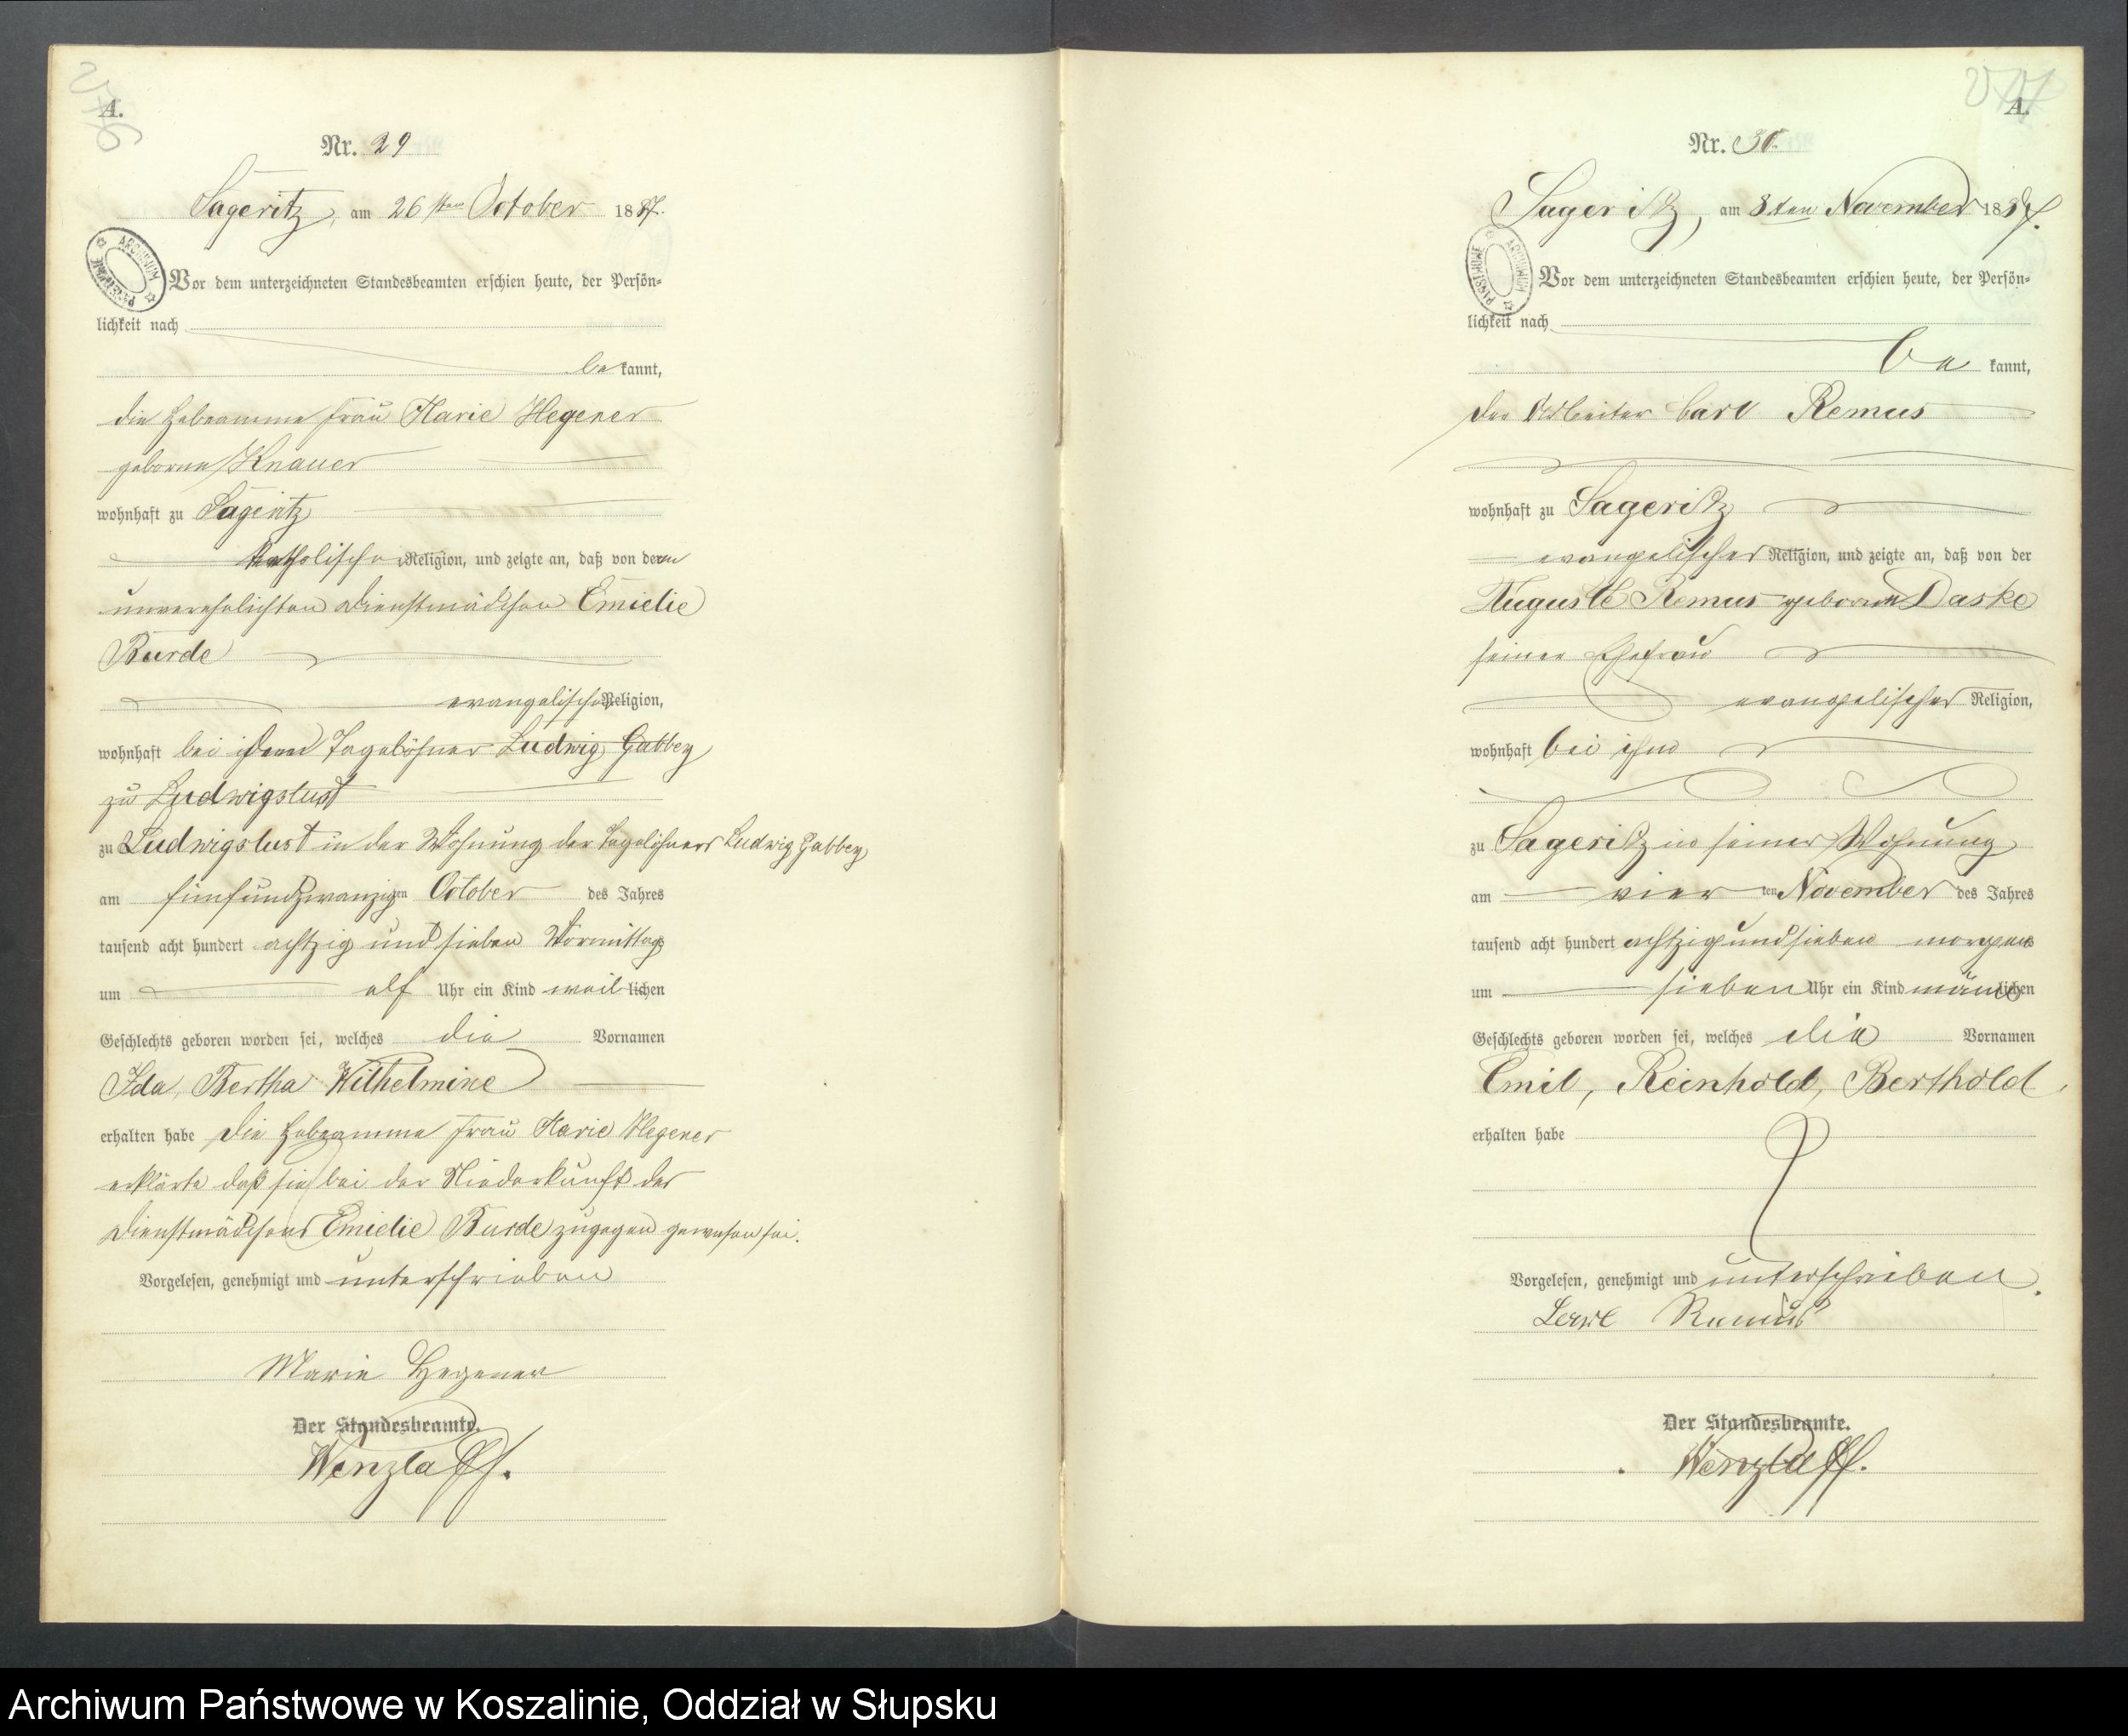 A.
Nr. 29
Sageritz, am 26sten October 1887.
ARCHIWUM PAŃSTWOWE
Vor dem unterzeichneten Standesbeamten erschien heute, der Persön-
lichkeit nach
be kannt,
die Hebeamme Frau Marie Hegener
geborne Knauer
wohnhaft zu Sageritz
katholischer Religion, und zeigte an, daß von der
unverehelichten Dienstmädchen Emielie
Burde
evangelischer Religion,
wohnhaft bei dem Tagelöhner Ludwig Gabbey
zu Ludwigslust
zu Ludwigslust in der Wohnung des Tagelöhners Ludwig Gabbey
am fünfundzwanzigten October des Jahres
tausend acht hundert achtzig und sieben Vormittags
um elf Uhr ein Kind weib lichen
Geschlechts geboren worden sei, welches die Vornamen
Ida, Bertha Wilhelmine
erhalten habe Die Hebeamme Frau Marie Hegener
erklärte daß sie bei der Niederkunft des
Dienstmädchens Emielie Burde zugegen gewesen sei.
Vorgelesen, genehmigt und unterschrieben
Marie Hegener
Der Standesbeamte.
Wenzlaff.
A.
Nr. 30.
Sageritz, am 8ten November 1887.
ARCHIWUM PAŃSTWOWE
Vor dem unterzeichneten Standesbeamten erschien heute, der Persön-
lichkeit nach
be kannt,
der Arbeiter Carl Remus
wohnhaft zu Sageritz
evangelischer Religion, und zeigte an, daß von der
Auguste Remus geborne Daske
seiner Ehefrau
evangelischer Religion,
wohnhaft bei ihm
zu Sageritz in seiner Wohnung
am vier ten November des Jahres
tausend acht hundert achtzig und sieben morgens
um sieben Uhr ein Kind männlichen
Geschlechts geboren worden sei, welches die Vornamen
Emil, Reinhold, Berthold,
erhalten habe
Vorgelesen, genehmigt und unterschrieben.
Remus
Der Standesbeamte.
Wenzlaff.
Archiwum Państwowe w Koszalinie, Oddział w Słupsku